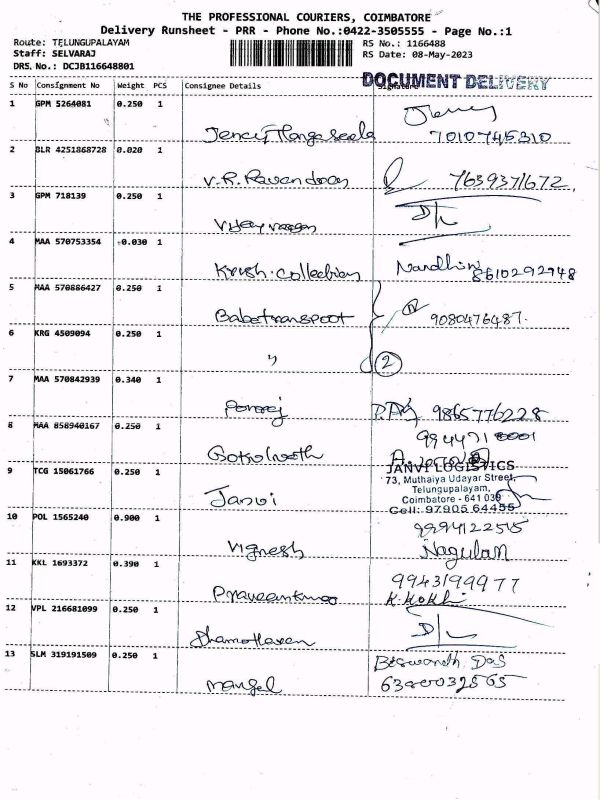 THE PROFESSIONAL COURIERS, COIMBATORE
Delivery Runsheet - PRR - Phone No.:0422-3505555 - Page No.:1
Route: TELUNGUPALAYAM
Staff: SELVARAJ
DRS. No.: DCJB116648801
RS No.: 1166488
RS Date: 08-May-2023
DOCUMENT DELIVERY
S No Consignment No Weight PCS Consignee Details Signature
1 GPM 5264081 0.250 1
Jency
7010745310
2 BLR 4251868728 0.020 1
V.R. 7639371672.
3 GPM 718139 0.250 1
D/L
4 MAA 570753354 0.030 1
Krish. Collection Nandhini
8610292948
5 MAA 570886427 0.250 1
Baba transpoot 9080476487.
6 KRG 4509094 0.250 1
" 2
7 MAA 570842939 0.340 1
Ponraj 9865776228
8 MAA 858940167 0.250 1
9 TCG 15061766 0.250 1
JANVI LOGISTICS
73, Muthaiya Udayar Street,
Telungupalayam,
Coimbatore - 641 039
Cell: 97905 64455
Janvi
10 POL 1565240 0.900 1
Vignesh Nagulan
11 KKL 1693372 0.390 1
9943199977
Praveenkumar
12 VPL 216681099 0.250 1
D/L
13 SLM 319191509 0.250 1
Biswanath Das
Mangal